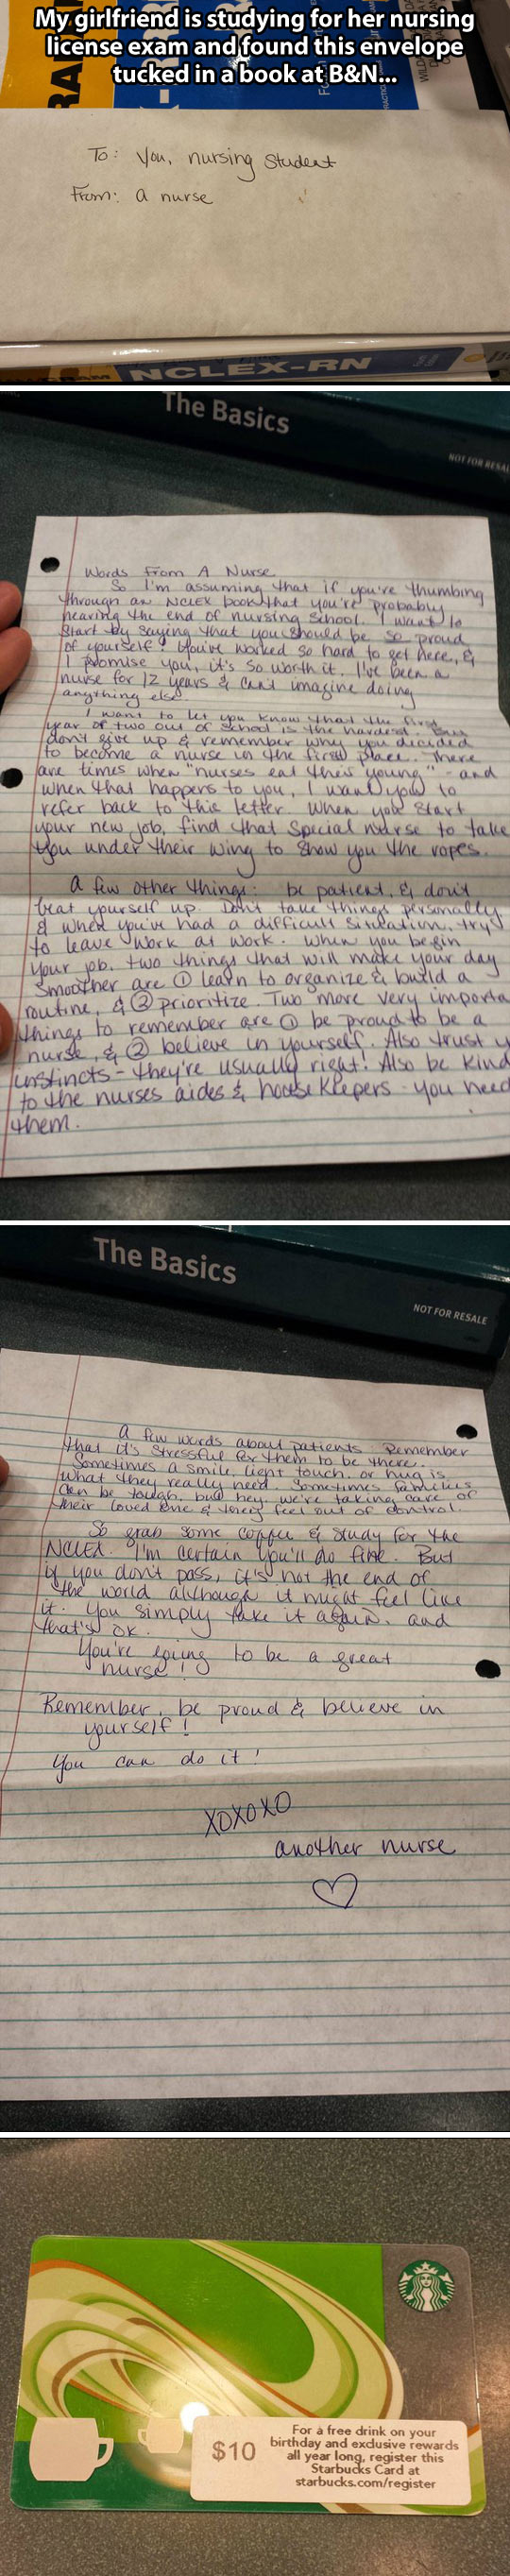 My girlfriend is studying for her nursing
license exam and found this envelope
tucked in a book at B&N...
To: You, nursing student
From: a nurse
NCLEX-RN
The Basics
NOT FOR RESAL
Words From A Nurse
So I'm assuming that if you're thumbing
through an NCLEX book that you're probably
nearing the end of nursing school. I want to
start by saying that you should be so proud
of yourself! You've worked so hard to get here, &
I promise you, it's so worth it. I've been a
nurse for 12 years & can't imagine doing
anything else.
I want to let you know that the first
year or two out of school is the hardest. But
don't give up & remember why you decided
to become a nurse in the first place. There
are times when "nurses eat their young" - and
when that happens to you, I want you to
refer back to this letter. When you start
your new job, find that special nurse to take
you under their wing to show you the ropes.
A few other things: be patient, & don't
beat yourself up. Don't take things personally
& when you've had a difficult situation, try
to leave work at work. When you begin
your job, two things that will make your day
smoother are ① learn to organize & build a
routine, & ② prioritize. Two more very importa
things to remember are ① be proud to be a
nurse, & ② believe in yourself. Also trust y
instincts - they're usually right! Also be kind
to the nurses aides & housekeepers - you need
them.
The Basics
NOT FOR RESALE
A few words about patients. Remember
that it's stressful for them to be there.
Sometimes a smile, light touch, or hug is
what they really need. Sometimes families
can be tough, but hey, we're taking care of
their loved one & they feel out of control.
So grab some coffee & study for the
NCLEX. I'm certain you'll do fine. But
if you don't pass, it's not the end of
the world although it might feel like
it. You simply take it again, and
that's ok.
You're going to be a great
nurse!
Remember, be proud & believe in
yourself!
You can do it!
XOXOXO
another nurse
$10
For a free drink on your
birthday and exclusive rewards
all year long, register this
Starbucks Card at
starbucks.com/register